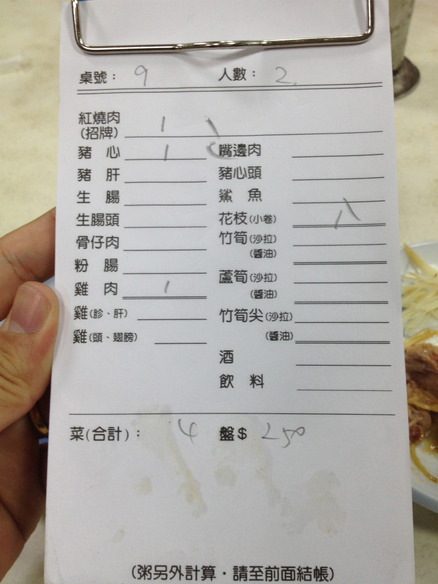 桌號： 9 人數： 2
紅燒肉
(招牌) 1
豬心 1 嘴邊肉
豬肝 豬心頭
生腸 鯊魚
生腸頭 花枝(小卷)
骨仔肉 竹筍(沙拉)
(醬油)
粉腸
雞肉 1 蘆筍(沙拉)
(醬油)
雞(胗、肝) 竹筍尖(沙拉)
雞(頭、翅膀) (醬油)
酒
飲料
菜(合計)： 4 盤$ 250
(粥另外計算・請至前面結帳)